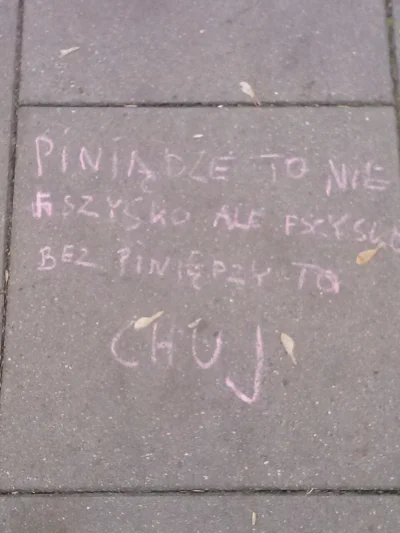 PINIĄDZE TO NIE
FSZYSKO ALE FSZYSKO
BEZ PINIĘDZY TO
CHUJ